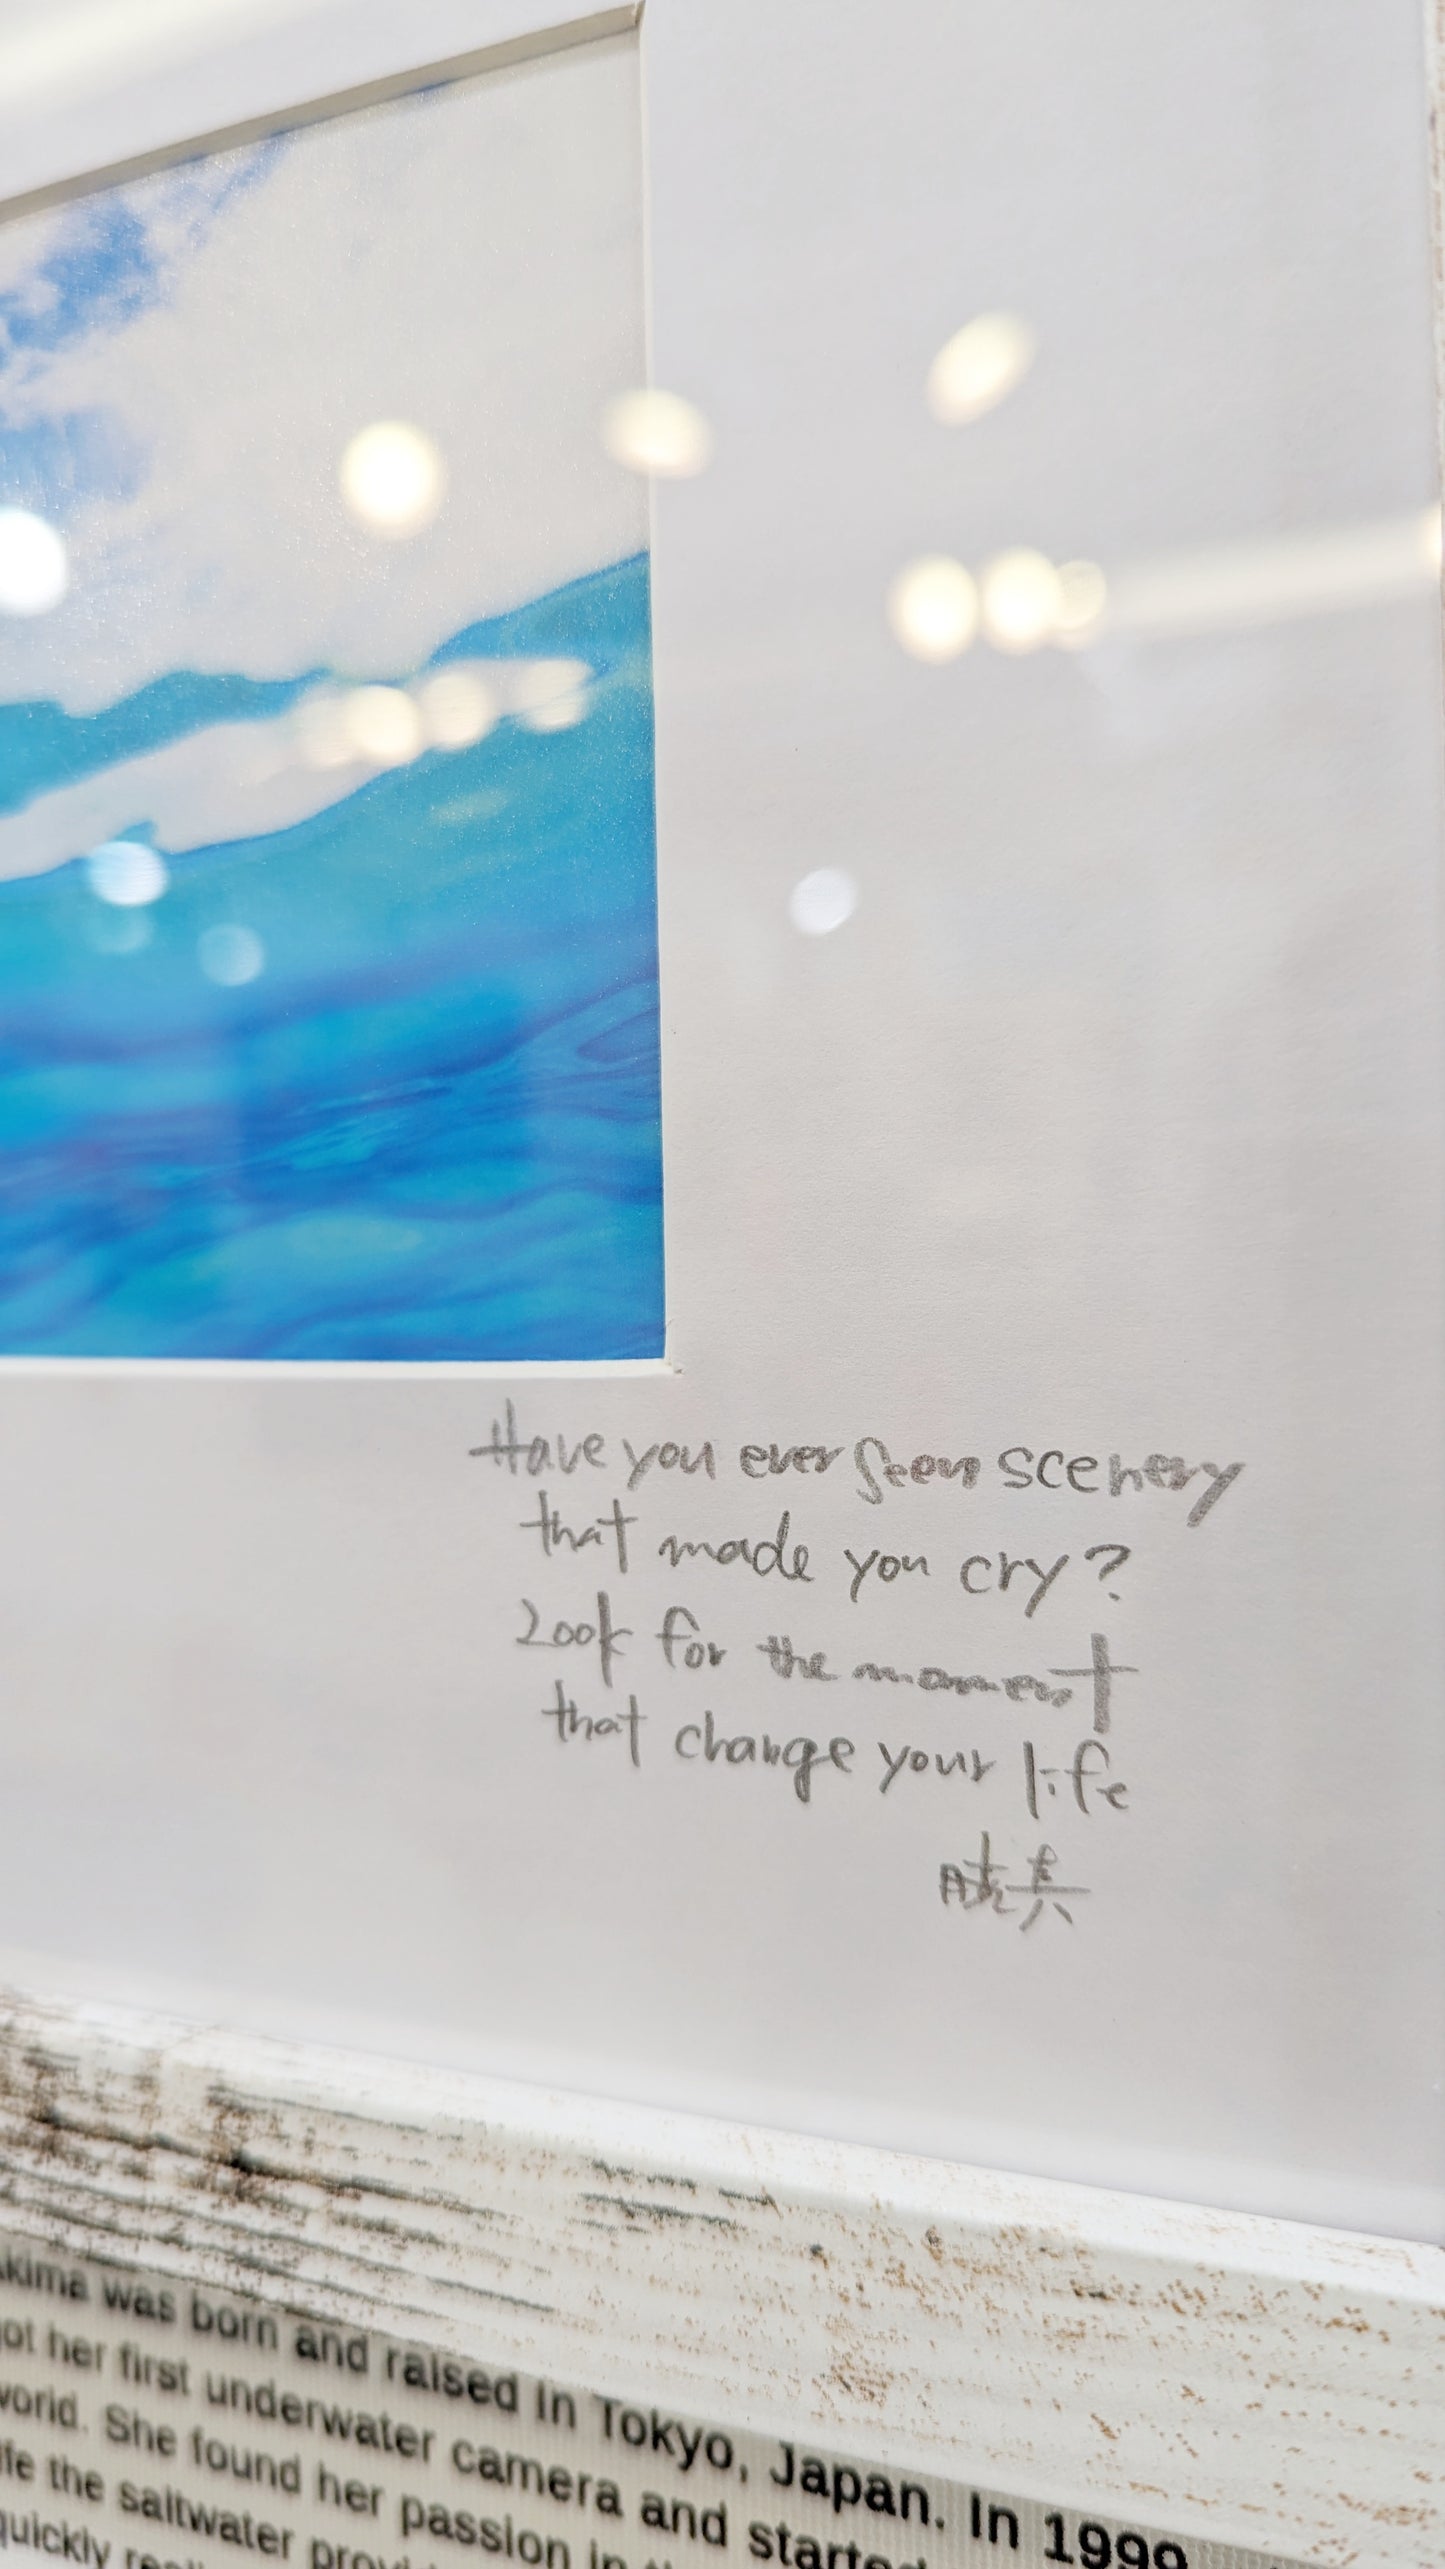 Have you ever seen scenery
that made you cry?
Look for the moment
that change your life
was born and raised in Tokyo, Japan. In 1999
her first underwater camera and started
world. She found her passion in
the saltwater
quickly